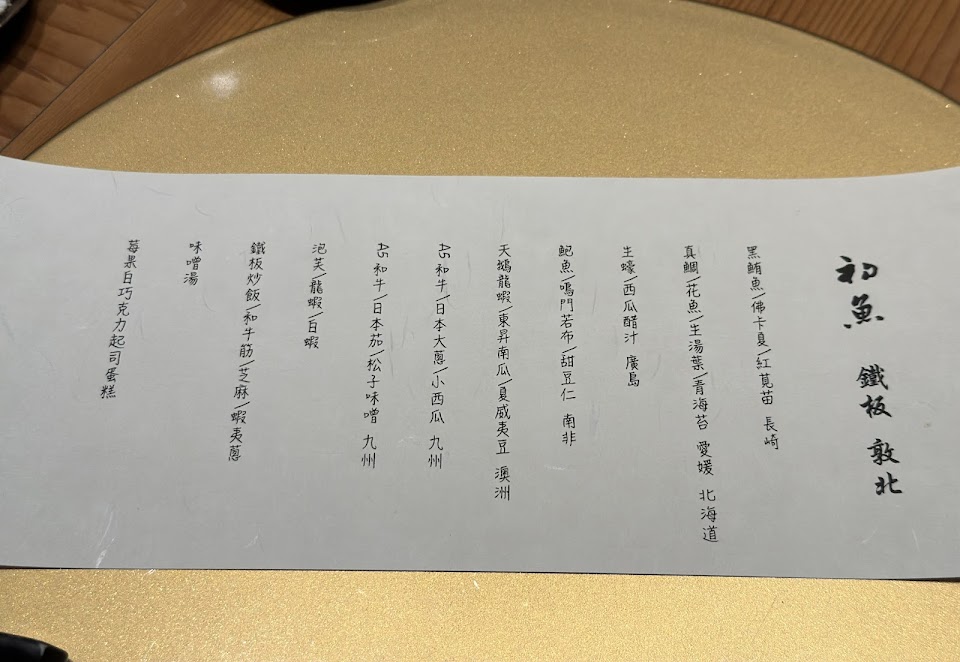 初魚 鐵板 敦北
黑鮪魚/佛卡夏/紅莧苗 長崎
真鯛/花魚/生湯葉/青海苔 愛媛 北海道
生蠔/西瓜醋汁 廣島
鮑魚/鳴門若布/甜豆仁 南非
天鵝龍蝦/東昇南瓜/夏威夷豆 澳洲
A5和牛/日本大蔥/小西瓜 九州
A5和牛/日本茄/松子味噌 九州
泡芙/龍蝦/白蝦
鐵板炒飯/和牛筋/芝麻/蝦夷蔥
味噌湯
莓果白巧克力起司蛋糕